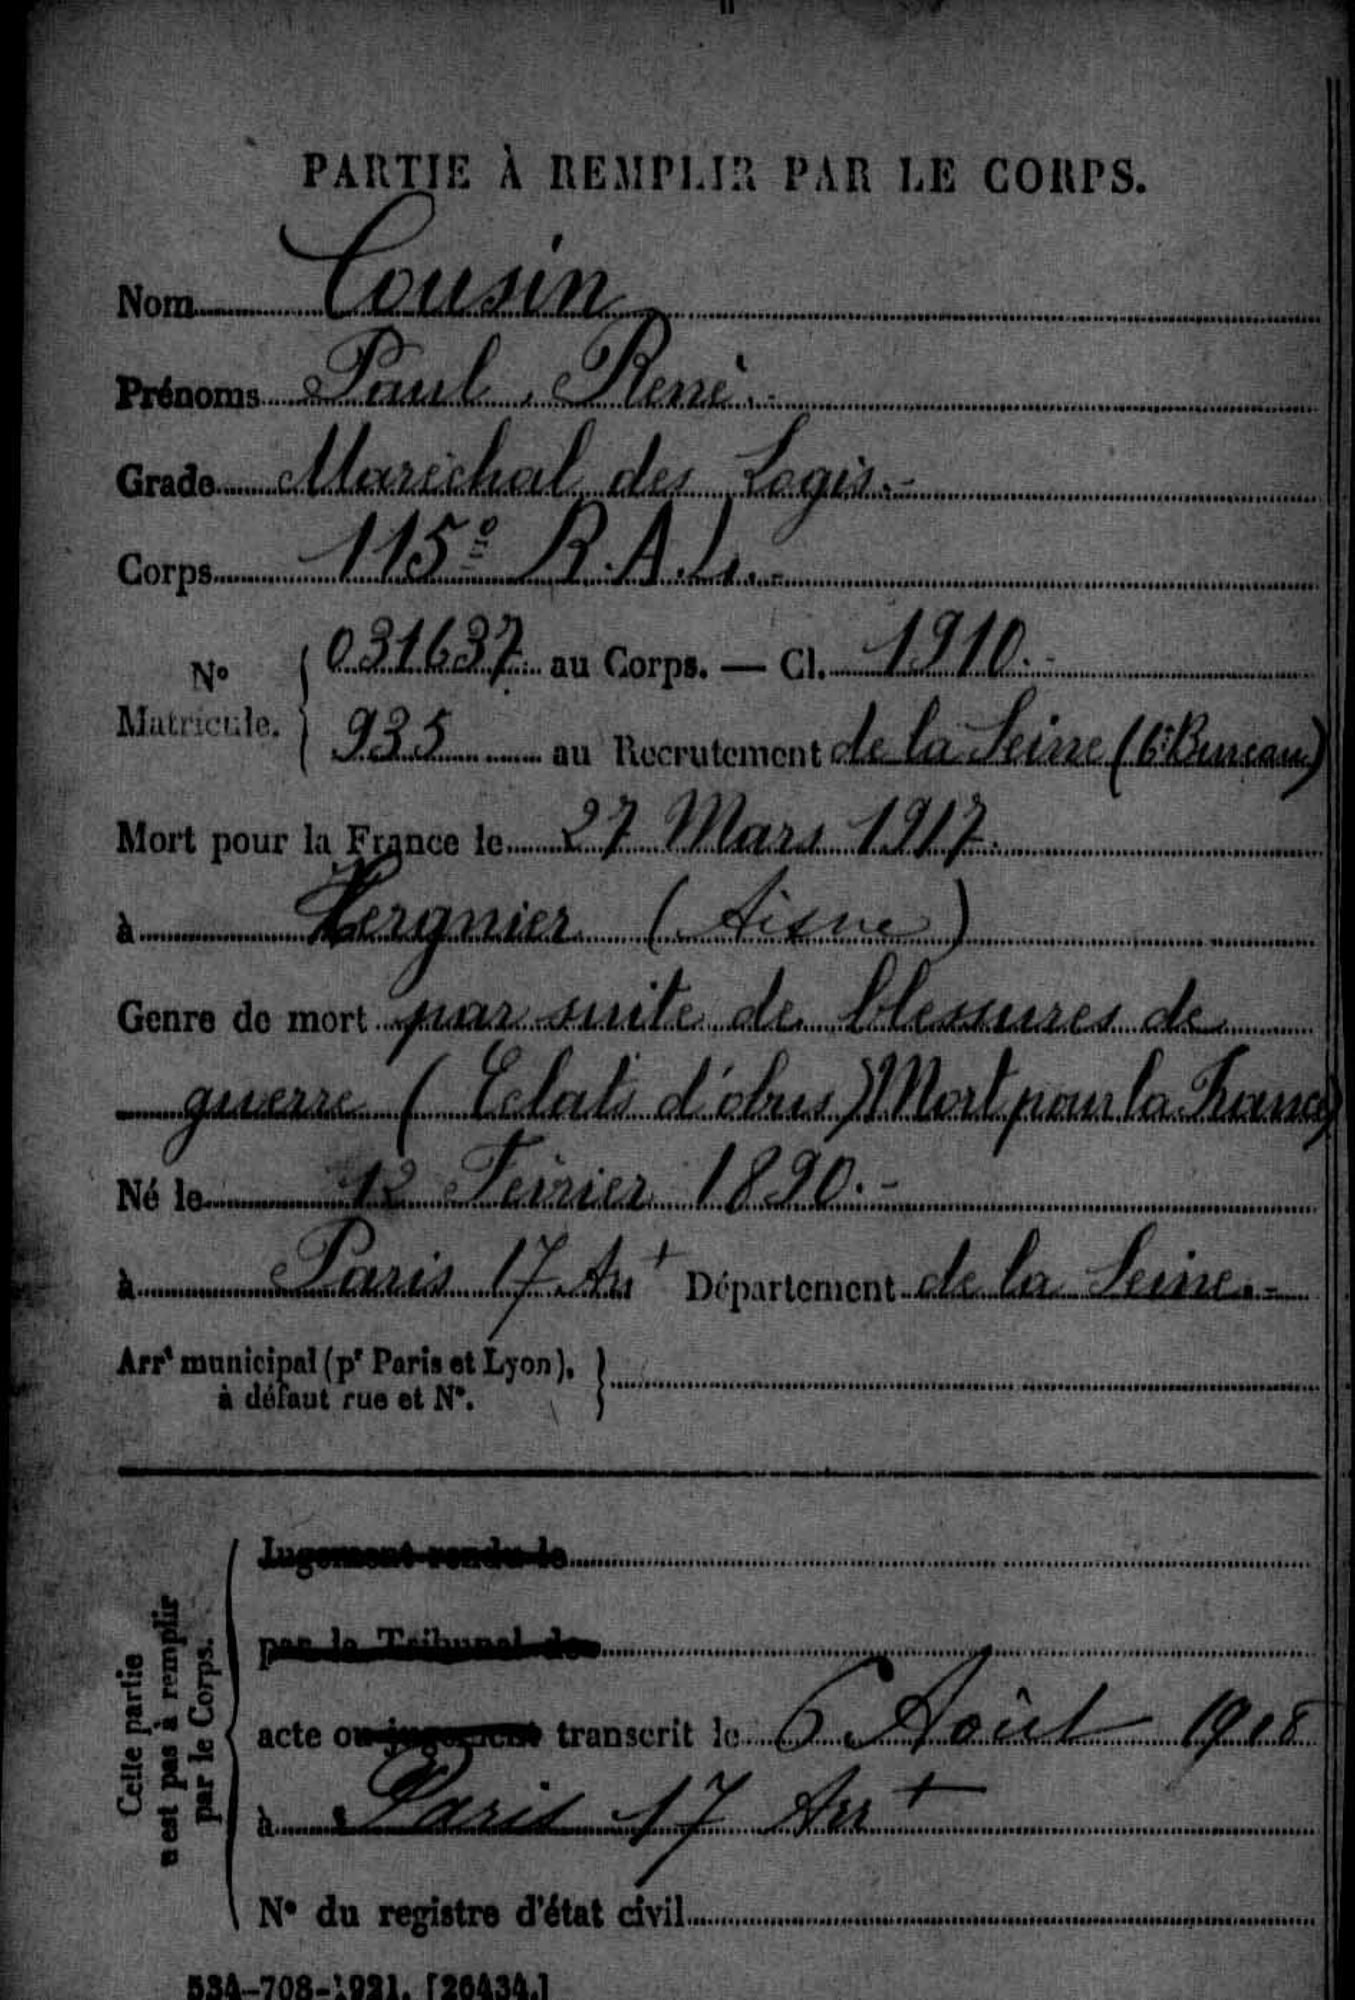 PARTIE À REMPLIR PAR LE CORPS.
Nom Cousin
Prénoms Paul, René.-
Grade Maréchal des Logis.-
Corps 115e R.A.L.-
No Matricule. { 031637 au Corps. — Cl. 1910.-
935 au Recrutement de la Seine (6e Bureau)
Mort pour la France le 27 Mars 1917.
à Tergnier (Aisne)
Genre de mort par suite de blessures de
guerre (Eclats d'obus) Mort pour la France)
Né le 12 Février 1890.-
à Paris 17 Arrt Département de la Seine.-
Arrt municipal (pr Paris et Lyon),
à défaut rue et No.
Cette partie
n'est pas à remplir
par le Corps.
Jugement rendu le
par le Tribunal de
acte ou jugement transcrit le 6 Août 1918
à Paris 17 Arrt
No du registre d'état civil
534-708-1921. [26434.]